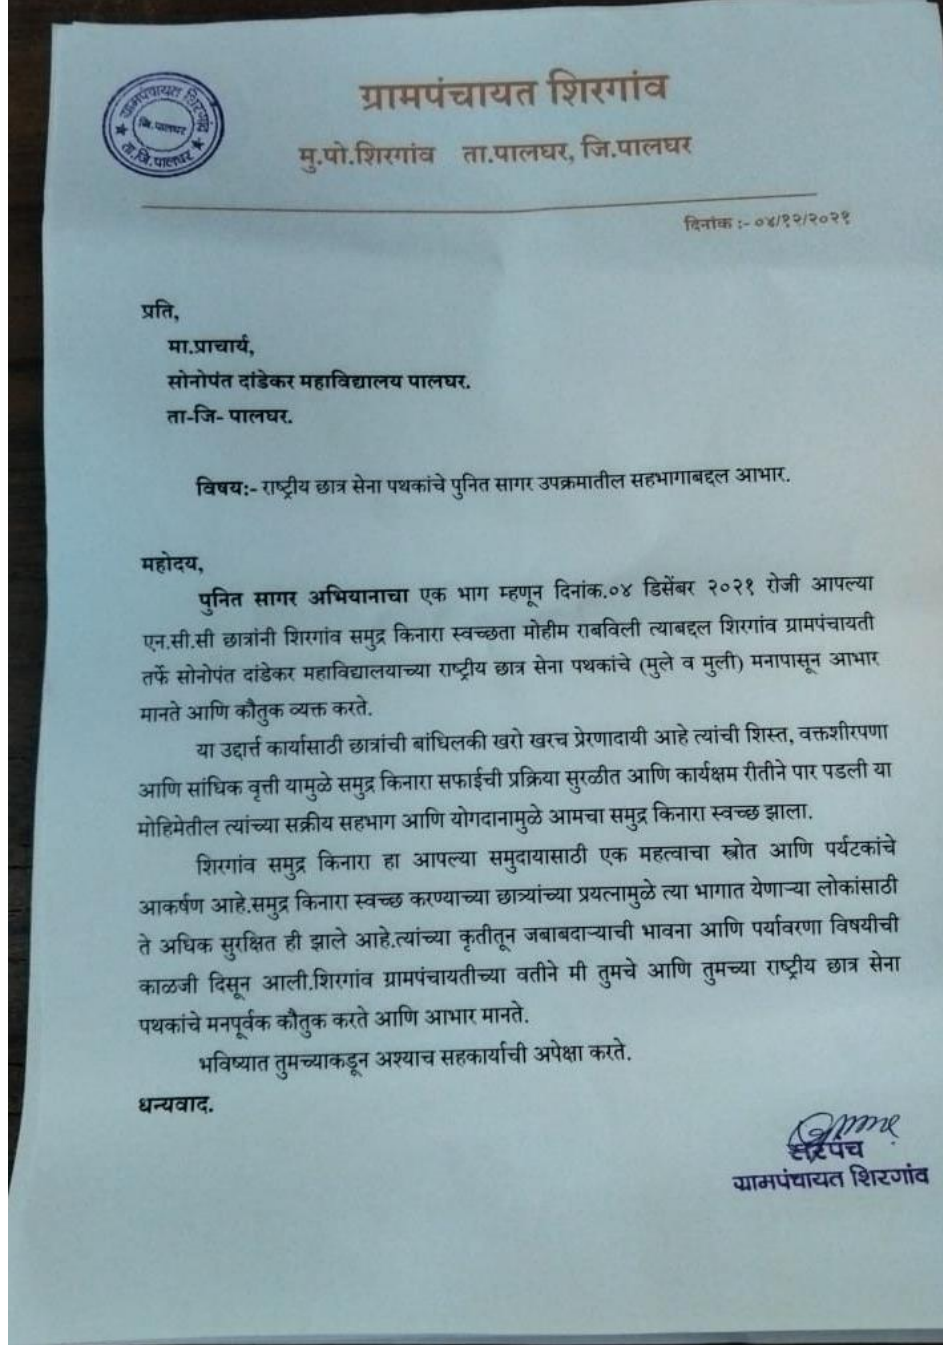 ग्रामपंचायत शिरगांव
जि.पालघर
ता.जि.पालघर
ग्रामपंचायत शिरगांव
मु.पो.शिरगांव ता.पालघर, जि.पालघर
दिनांक :- ०४/१२/२०२१
प्रति,
मा.प्राचार्य,
सोनोपंत दांडेकर महाविद्यालय पालघर.
ता-जि- पालघर.
विषय:- राष्ट्रीय छात्र सेना पथकांचे पुनित सागर उपक्रमातील सहभागाबद्दल आभार.
महोदय,
पुनित सागर अभियानाचा एक भाग म्हणून दिनांक.०४ डिसेंबर २०२१ रोजी आपल्या
एन.सी.सी छात्रांनी शिरगांव समुद्र किनारा स्वच्छता मोहीम राबविली त्याबद्दल शिरगांव ग्रामपंचायती
तर्फे सोनोपंत दांडेकर महाविद्यालयाच्या राष्ट्रीय छात्र सेना पथकांचे (मुले व मुली) मनापासून आभार
मानते आणि कौतुक व्यक्त करते.
या उद्दार्त्त कार्यासाठी छात्रांची बांधिलकी खरो खरच प्रेरणादायी आहे त्यांची शिस्त, वक्तशीरपणा
आणि सांधिक वृत्ती यामुळे समुद्र किनारा सफाईची प्रक्रिया सुरळीत आणि कार्यक्षम रीतीने पार पडली या
मोहिमेतील त्यांच्या सक्रीय सहभाग आणि योगदानामुळे आमचा समुद्र किनारा स्वच्छ झाला.
शिरगांव समुद्र किनारा हा आपल्या समुदायासाठी एक महत्वाचा स्त्रोत आणि पर्यटकांचे
आकर्षण आहे.समुद्र किनारा स्वच्छ करण्याच्या छात्र्यांच्या प्रयत्नामुळे त्या भागात येणाऱ्या लोकांसाठी
ते अधिक सुरक्षित ही झाले आहे.त्यांच्या कृतीतून जबाबदाऱ्याची भावना आणि पर्यावरणा विषयीची
काळजी दिसून आली.शिरगांव ग्रामपंचायतीच्या वतीने मी तुमचे आणि तुमच्या राष्ट्रीय छात्र सेना
पथकांचे मनपूर्वक कौतुक करते आणि आभार मानते.
भविष्यात तुमच्याकडून अश्याच सहकार्याची अपेक्षा करते.
धन्यवाद.
सरपंच
ग्रामपंचायत शिरगांव